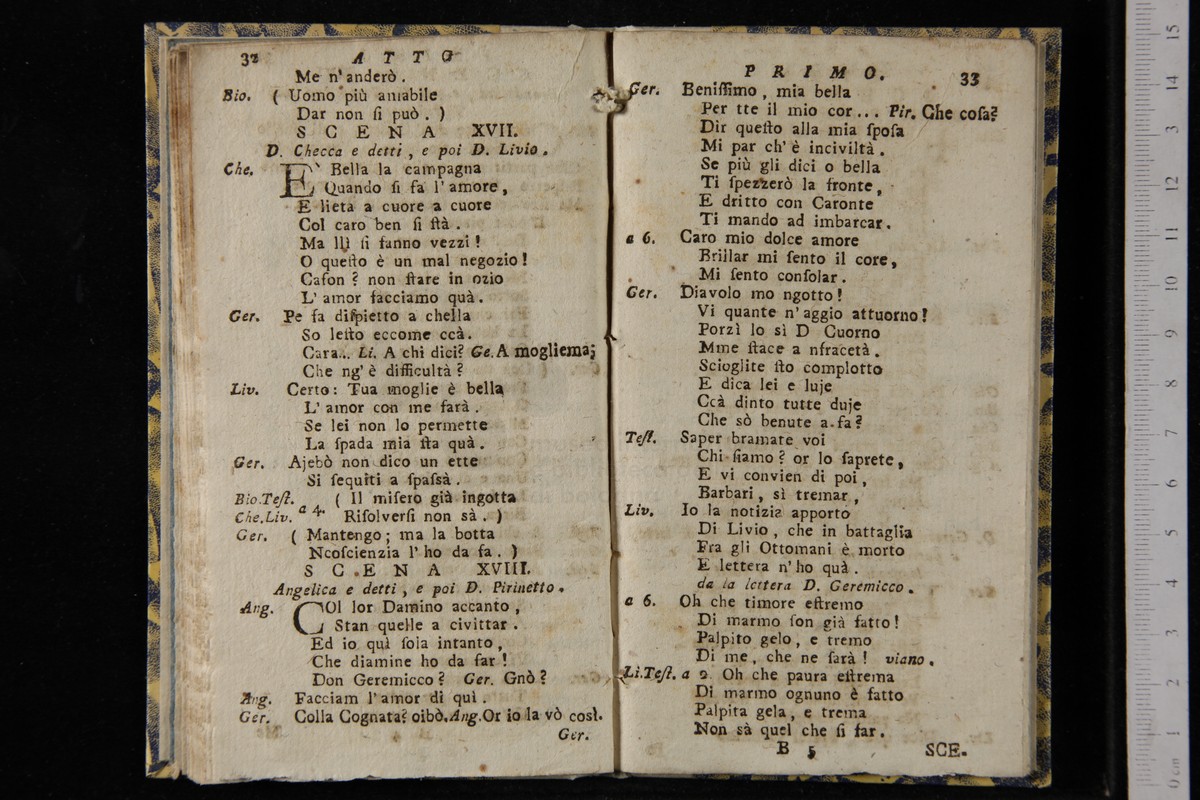 32 ATTO
Me n' anderò.
Bio. ( Uomo più amabile
Dar non ſi può. )
SCENA XVII.
D. Checca e detti, e poi D. Livio.
Che. E' Bella la campagna
Quando ſi fa l' amore,
E lieta a cuore a cuore
Col caro ben ſi ſtà.
Ma llì ſi fanno vezzi!
O queſto è un mal negozio!
Caſon? non ſtare in ozio
L' amor facciamo quà.
Ger. Pe fa diſpietto a chella
So leſto eccome ccà.
Cara... Li. A chi dici? Ge. A mogliema;
Che ng' è difficultà?
Liv. Certo: Tua moglie è bella
L' amor con me farà.
Se lei non lo permette
La ſpada mia ſta quà.
Ger. Ajebò non dico un ette
Si ſequiti a ſpaſsà.
Bio. Teſt. ( Il miſero già ingotta
Che. Liv. a 4. Riſolverſi non sà. )
Ger. ( Mantengo; ma la botta
Ncoſcienzia l' ho da fa. )
SCENA XVIII.
Angelica e detti, e poi D. Pirinetto.
Ang. COl lor Damino accanto,
Stan quelle a civittar.
Ed io quì ſola intanto,
Che diamine ho da far!
Don Geremicco? Ger. Gnò?
Ang. Facciam l' amor di quì.
Ger. Colla Cognata? oibò. Ang. Or io la vò così.
Ger.
PRIMO. 33
Ger. Beniſſimo, mia bella
Per tte il mio cor... Pir. Che coſa?
Dir queſto alla mia ſpoſa
Mi par ch' è inciviltà.
Se più gli dici o bella
Ti ſpezzerò la fronte,
E dritto con Caronte
Ti mando ad imbarcar.
a 6. Caro mio dolce amore
Brillar mi ſento il core,
Mi ſento conſolar.
Ger. Diavolo mo ngotto!
Vi quante n' aggio attuorno!
Porzì lo sì D Cuorno
Mme ſtace a nfracetà.
Scioglite ſto complotto
E dica lei e luje
Ccà dinto tutte duje
Che sò benute a fa?
Teſt. Saper bramate voi
Chi ſiamo? or lo ſaprete,
E vi convien di poi,
Barbari, sì tremar,
Liv. Io la notizia apporto
Di Livio, che in battaglia
Fra gli Ottomani è morto
E lettera n' ho quà.
da la lettera D. Geremicco.
a 6. Oh che timore eſtremo
Di marmo ſon già fatto!
Palpito gelo, e tremo
Di me, che ne ſarà! viano.
Li. Teſt. a 2. Oh che paura eſtrema
Di marmo ognuno è fatto
Palpita gela, e trema
Non sà quel che ſi far.
B 5 SCE.
15
14
13
12
11
10
9
8
7
6
5
4
3
2
1
0 cm